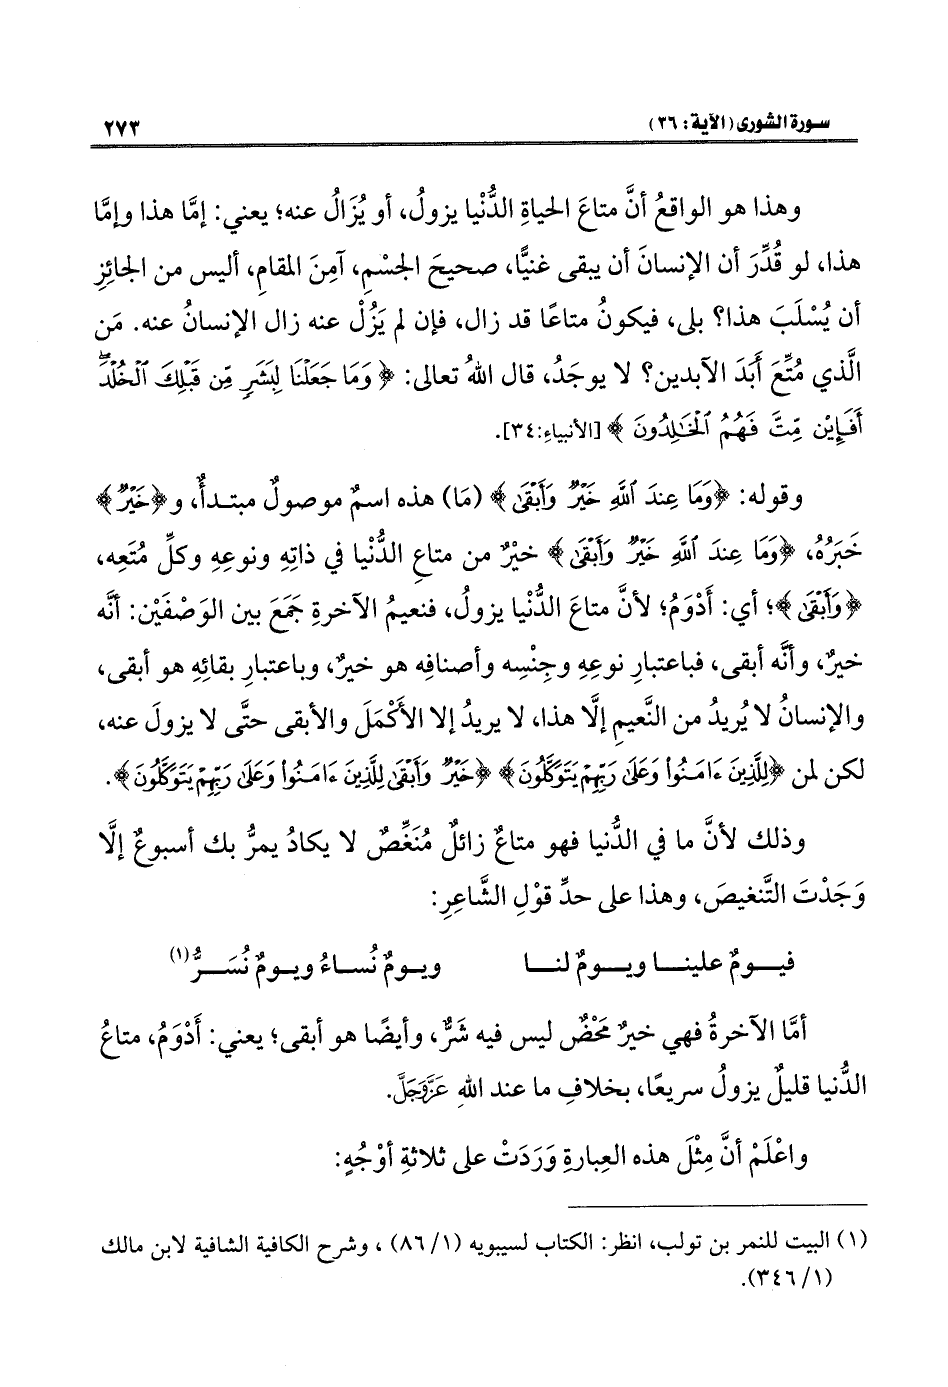 سورة الشورى (الآية: ٣٦)
٢٧٣
وهذا هو الواقعُ أنَّ متاعَ الحياةِ الدُّنْيا يزولُ، أو يُزَالُ عنه؛ يعني: إمَّا هذا وإمَّا
هذا، لو قُدِّرَ أن الإنسانَ أن يبقى غنيًّا، صحيحَ الجسْمِ، آمِنَ المقامِ، أليس من الجائزِ
أن يُسْلَبَ هذا؟ بلى، فيكونُ متاعًا قد زال، فإن لم يَزُلْ عنه زال الإنسانُ عنه. مَن
الَّذي مُتِّعَ أَبَدَ الآبدين؟ لا يوجَدُ، قال اللهُ تعالى: ﴿ وَمَا جَعَلْنَا لِبَشَرٍ مِّن قَبْلِكَ ٱلْخُلْدَۖ
أَفَإِيْن مِّتَّ فَهُمُ ٱلْخَٰلِدُونَ ﴾ [الأنبياء:٣٤].
وقوله: ﴿وَمَا عِندَ ٱللَّهِ خَيْرٌ وَأَبْقَىٰ﴾ (مَا) هذه اسمٌ موصولٌ مبتدأٌ، و﴿خَيْرٌ﴾
خَبَرُهُ، ﴿وَمَا عِندَ ٱللَّهِ خَيْرٌ وَأَبْقَىٰ﴾ خيْرٌ من متاعِ الدُّنْيا في ذاتِهِ ونوعِهِ وكلِّ مُتَعِه،
﴿وَأَبْقَىٰ﴾؛ أي: أَدْوَمُ؛ لأنَّ متاعَ الدُّنْيا يزولُ، فنعيمُ الآخرةِ جَمَعَ بين الوَصْفَيْن: أنَّه
خيرٌ، وأنَّه أبقى، فباعتبارِ نوعِهِ وجِنْسِه وأصنافِه هو خيرٌ، وباعتبارِ بقائِهِ هو أبقى،
والإنسانُ لا يُريدُ من النَّعيمِ إلَّا هذا، لا يريدُ إلا الأَكْمَلَ والأبقى حتَّى لا يزولَ عنه،
لكن لمن ﴿لِلَّذِينَ ءَامَنُوا۟ وَعَلَىٰ رَبِّهِمْ يَتَوَكَّلُونَ﴾ ﴿خَيْرٌ وَأَبْقَىٰ لِلَّذِينَ ءَامَنُوا۟ وَعَلَىٰ رَبِّهِمْ يَتَوَكَّلُونَ﴾.
وذلك لأنَّ ما في الدُّنْيا فهو متاعٌ زائلٌ مُنَغِّصٌ لا يكادُ يمرُّ بك أسبوعٌ إلَّا
وَجَدْتَ التَّنغيصَ، وهذا على حدِّ قوْلِ الشَّاعِرِ:
فيـومٌ علينـا ويـومٌ لنـا ويـومٌ نُساءُ ويـومٌ نُسَـرُّ(١)
أمَّا الآخرةُ فهي خيرٌ مَحْضٌ ليس فيه شَرٌّ، وأيضًا هو أبقى؛ يعني: أَدْوَمُ، متاعُ
الدُّنيا قليلٌ يزولُ سريعًا، بخلافِ ما عند اللهِ عَزَّوَجَلَّ.
واعْلَمْ أنَّ مِثْلَ هذه العِبارةِ وَرَدَتْ على ثلاثةِ أوْجُهٍ:
(١) البيت للنمر بن تولب، انظر: الكتاب لسيبويه (١/ ٨٦)، وشرح الكافية الشافية لابن مالك
(١/ ٣٤٦).